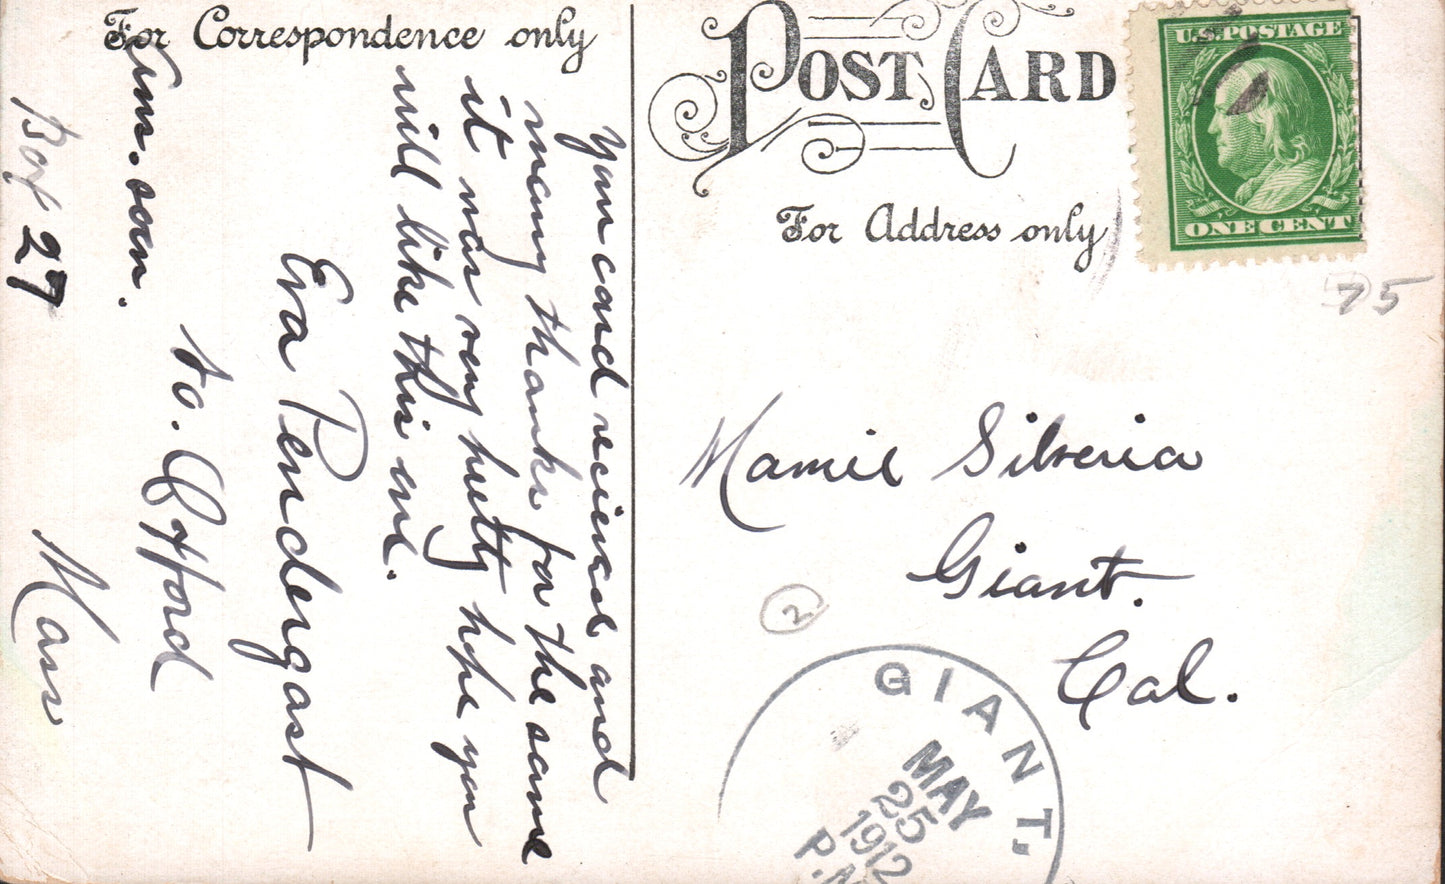 For Correspondence only
your card recieved and
many thanks for the same
it was very pretty hope you
will like this one.
Eva Pendergast
to. Oxford
Ans. soon.
Box 27
Mass
POST CARD
For Address only
U.S. POSTAGE
ONE CENT
75
Mamie Silveria
Giant.
Cal.
2
GIANT,
MAY
25
1912
P.M